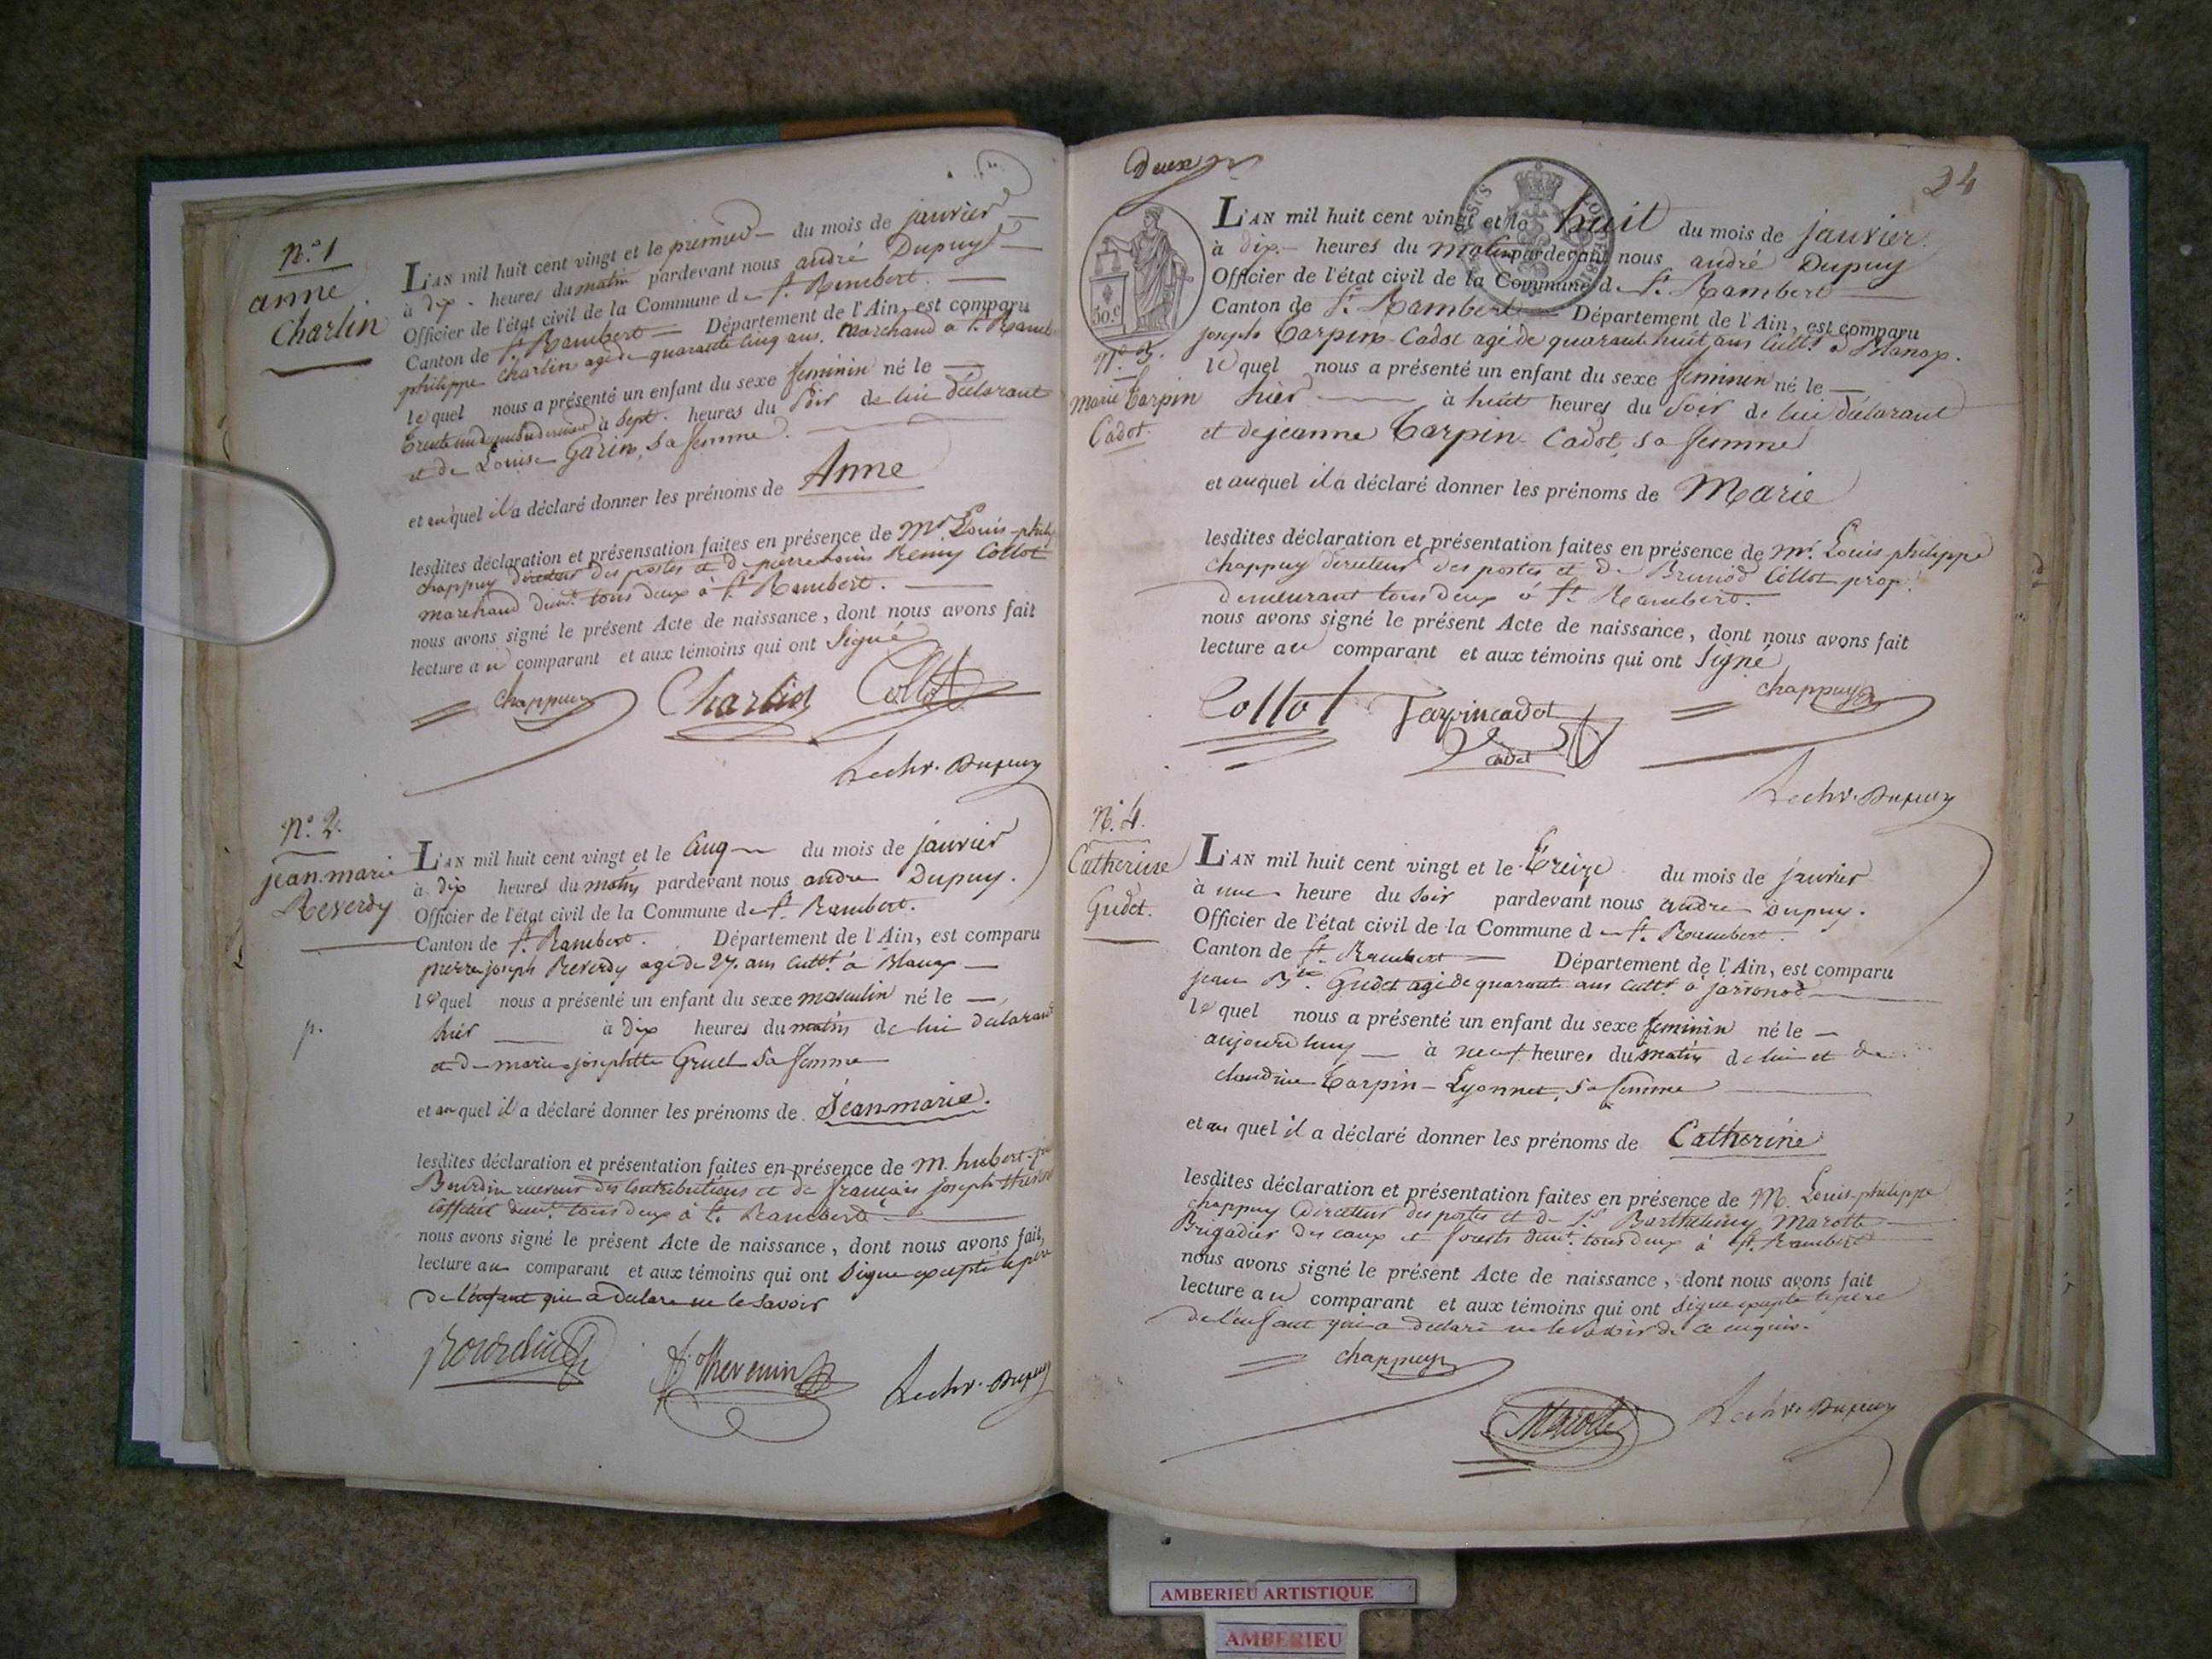 N.° 1
anne
Charlin
L'AN mil huit cent vingt et le premier du mois de janvier
à dix heures du matin pardevant nous andré Dupuy
Officier de l'état civil de la Commune de St. Rambert.
Canton de St. Rambert Département de l'Ain, est comparu
philippe Charlin agé de quarante cinq ans, marchand a St. Ramb
lequel nous a présenté un enfant du sexe feminin né le
trente un à Sept heures du soir de lui déclarant
et de Louise Garin, sa femme.
et auquel il a déclaré donner les prénoms de Anne
lesdites déclaration et présensation faites en présence de Mr. Louis-phili
chappuy directeur des postes et de pierre Louis Remy Collot
marchand demt. tous deux à St. Rambert.
nous avons signé le présent Acte de naissance, dont nous avons fait
lecture au comparant et aux témoins qui ont Signé
chappuy Charlin Collot
Dupuy
N.° 2.
jean marie
Reverdy
p.
L'AN mil huit cent vingt et le Cinq du mois de janvier
à dix heures du matin pardevant nous andre Dupuy.
Officier de l'état civil de la Commune de St. Rambert.
Canton de St. Rambert. Département de l'Ain, est comparu
pierre joseph Reverdy agé de 27. ans cultr. à Blanaz
lequel nous a présenté un enfant du sexe masculin né le
hier à dix heures du matin de lui declarant
et de marie josephtte Gruel sa femme
et auquel il a déclaré donner les prénoms de Jean marie.
lesdites déclaration et présentation faites en présence de M. hubert
Bourdin receveur des Contributions et de françois joseph thevenin
demt. tous deux à St. Rambert
nous avons signé le présent Acte de naissance, dont nous avons fait,
lecture au comparant et aux témoins qui ont signe excepté le pere
de l'enfant qui a declare ne le savoir
Bourdin Thevenin Dupuy
Deux
24
30.c
L'AN mil huit cent vingt et le huit du mois de janvier.
à dix heures du matin pardevant nous andré Dupuy
Officier de l'état civil de la Commune de St. Rambert
Canton de St. Rambert Département de l'Ain, est comparu
joseph Tarpin Cadot agé de quarante huit ans Cultr. à Blanaz.
N.° 3.
marie Tarpin
Cadot.
lequel nous a présenté un enfant du sexe feminin né le
hier à huit heures du soir de lui déclarant
et de jeanne Tarpin Cadot, sa femme
et auquel il a déclaré donner les prénoms de Marie
lesdites déclaration et présentation faites en présence de Mr. Louis philippe
chappuy directeur des postes et de Collot prop.
demeurant tous deux à St. Rambert.
nous avons signé le présent Acte de naissance, dont nous avons fait
lecture au comparant et aux témoins qui ont Signé
Collot Tarpin cadot chappuy
Cadet
Dupuy
N.° 4.
Catherine
Gudet.
L'AN mil huit cent vingt et le treize du mois de janvier
à une heure du soir pardevant nous andre Dupuy.
Officier de l'état civil de la Commune de St. Rambert.
Canton de St. Rambert Département de l'Ain, est comparu
jean Bte. Gudet agé de quarante ans cultr. à javornod
lequel nous a présenté un enfant du sexe feminin né le
aujourdhuy à neuf heures du matin de lui et de
claudine Tarpin-Lyonnet, sa femme
et auquel il a déclaré donner les prénoms de Catherine
lesdites déclaration et présentation faites en présence de M. Louis-philippe
chappuy Directeur des postes et de Sr. Barthelemy Marotte
Brigadier des eaux et forests demt. tous deux à St. Rambert
nous avons signé le présent Acte de naissance, dont nous avons fait
lecture au comparant et aux témoins qui ont signe excepte le pere
de l'enfant qui a declaré ne le savoir de ce enquis.
chappuy
Marotte Dupuy
AMBERIEU ARTISTIQUE
AMBERIEU